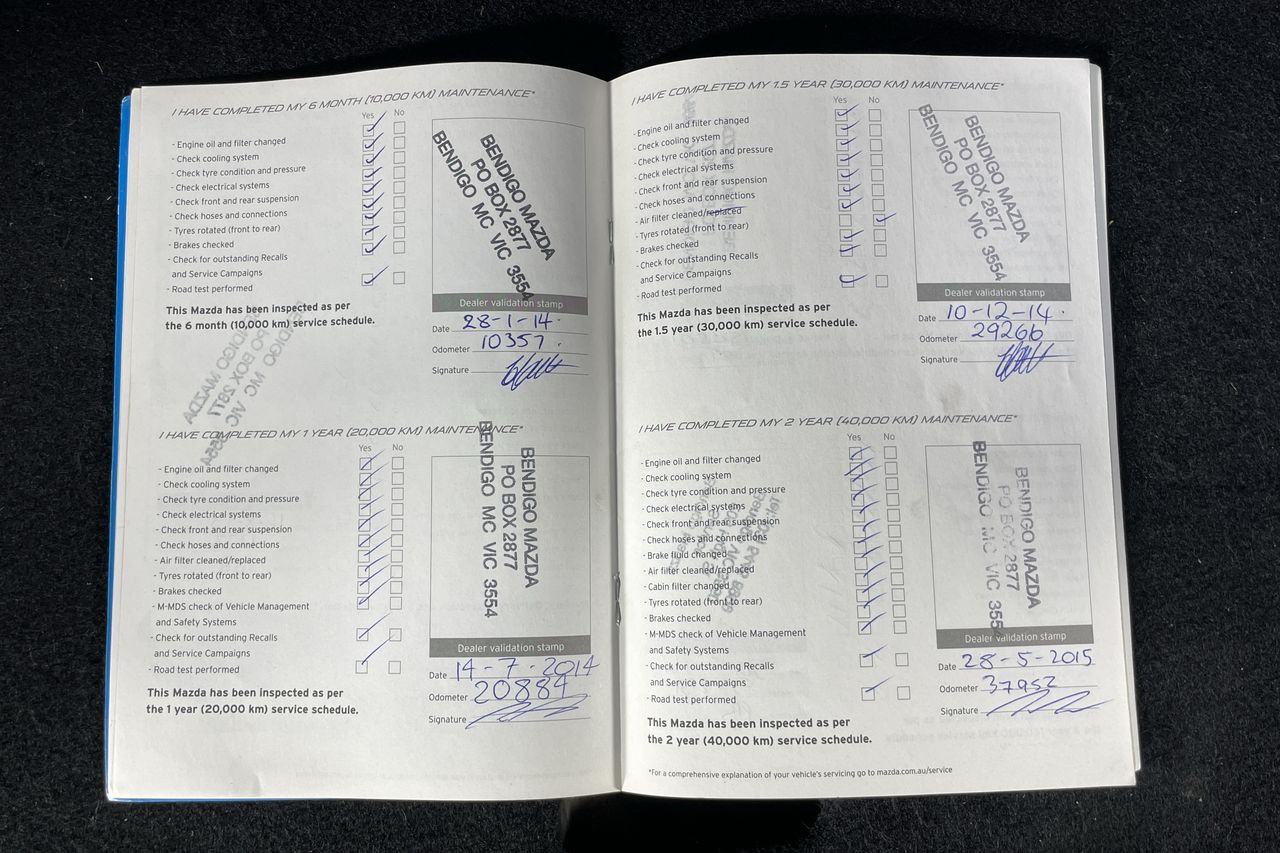 I HAVE COMPLETED MY 6 MONTH (10,000 KM) MAINTENANCE*
Yes No
- Engine oil and filter changed
- Check cooling system
- Check tyre condition and pressure
- Check electrical systems
- Check front and rear suspension
- Check hoses and connections
- Tyres rotated (front to rear)
- Brakes checked
- Check for outstanding Recalls
and Service Campaigns
- Road test performed
This Mazda has been inspected as per
the 6 month (10,000 km) service schedule.
BENDIGO MAZDA
PO BOX 2877
BENDIGO MC VIC 3554
Dealer validation stamp
Date 28-1-14.
Odometer 10357.
Signature
I HAVE COMPLETED MY 1 YEAR (20,000 KM) MAINTENANCE*
Yes No
- Engine oil and filter changed
- Check cooling system
- Check tyre condition and pressure
- Check electrical systems
- Check front and rear suspension
- Check hoses and connections
- Air filter cleaned/replaced
- Tyres rotated (front to rear)
- Brakes checked
- M-MDS check of Vehicle Management
and Safety Systems
- Check for outstanding Recalls
and Service Campaigns
- Road test performed
This Mazda has been inspected as per
the 1 year (20,000 km) service schedule.
BENDIGO MAZDA
PO BOX 2877
BENDIGO MC VIC 3554
Dealer validation stamp
Date 14-7-2014
Odometer 20884
Signature
I HAVE COMPLETED MY 1.5 YEAR (30,000 KM) MAINTENANCE*
Yes No
- Engine oil and filter changed
- Check cooling system
- Check tyre condition and pressure
- Check electrical systems
- Check front and rear suspension
- Check hoses and connections
- Air filter cleaned/replaced
- Tyres rotated (front to rear)
- Brakes checked
- Check for outstanding Recalls
and Service Campaigns
- Road test performed
This Mazda has been inspected as per
the 1.5 year (30,000 km) service schedule.
BENDIGO MAZDA
PO BOX 2877
BENDIGO MC VIC 3554
Dealer validation stamp
Date 10-12-14.
Odometer 29266
Signature
I HAVE COMPLETED MY 2 YEAR (40,000 KM) MAINTENANCE*
Yes No
- Engine oil and filter changed
- Check cooling system
- Check tyre condition and pressure
- Check electrical systems
- Check front and rear suspension
- Check hoses and connections
- Brake fluid changed
- Air filter cleaned/replaced
- Cabin filter changed
- Tyres rotated (front to rear)
- Brakes checked
- M-MDS check of Vehicle Management
and Safety Systems
- Check for outstanding Recalls
and Service Campaigns
- Road test performed
This Mazda has been inspected as per
the 2 year (40,000 km) service schedule.
BENDIGO MAZDA
PO BOX 2877
BENDIGO MC VIC 355
Dealer validation stamp
Date 28-5-2015
Odometer 37952
Signature
*For a comprehensive explanation of your vehicle's servicing go to mazda.com.au/service